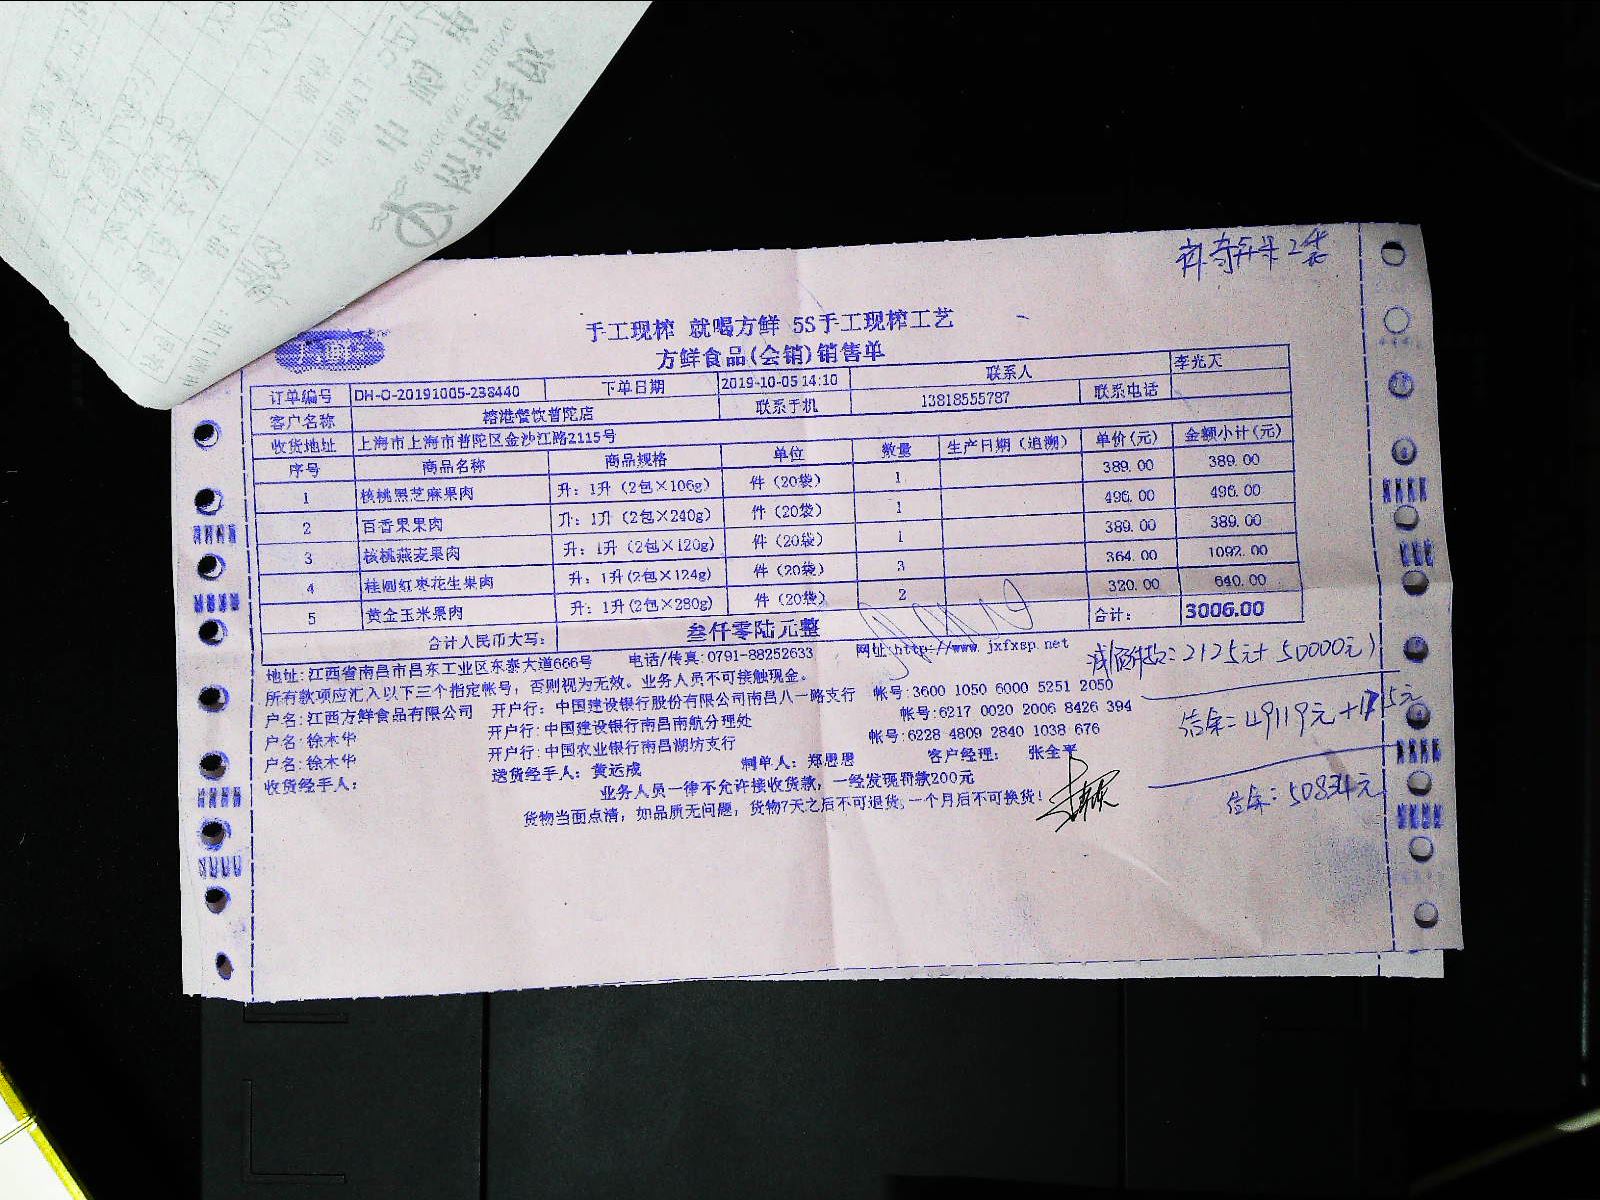 手工现榨 就喝方鲜 5S手工现榨工艺
方鲜食品(会销)销售单
订单编号 DH-O-20191005-238440 下单日期 2019-10-05 14:10 联系人 李光天
客户名称 榕港餐饮普陀店 联系手机 13818555787 联系电话
收货地址 上海市上海市普陀区金沙江路2115号
序号 商品名称 商品规格 单位 数量 生产日期（追溯） 单价(元) 金额小计(元)
1 核桃黑芝麻果肉 升：1升（2包×106g） 件（20袋） 1 389.00 389.00
2 百香果果肉 升：1升（2包×240g） 件（20袋） 1 496.00 496.00
3 核桃燕麦果肉 升：1升（2包×120g） 件（20袋） 1 389.00 389.00
4 桂圆红枣花生果肉 升：1升(2包×124g) 件（20袋） 3 364.00 1092.00
5 黄金玉米果肉 升：1升(2包×280g) 件（20袋） 2 320.00 640.00
合计人民币大写： 叁仟零陆元整 合计： 3006.00
地址:江西省南昌市昌东工业区东泰大道666号 电话/传真:0791-88252633 网址:http://www.jxfxsp.net
所有款项应汇入以下三个指定帐号，否则视为无效。业务人员不可接触现金。
户名:江西方鲜食品有限公司 开户行：中国建设银行股份有限公司南昌八一路支行 帐号:3600 1050 6000 5251 2050
户名:徐木华 开户行:中国建设银行南昌南航分理处 帐号:6217 0020 2006 8426 394
户名:徐木华 开户行:中国农业银行南昌湖坊支行 帐号:6228 4809 2840 1038 676
收货经手人： 送货经手人：黄远成 制单人：郑思思 客户经理： 张全平
业务人员一律不允许接收货款，一经发现罚款200元
货物当面点清，如品质无问题，货物7天之后不可退货,一个月后不可换货！
2125元+50000元)
结余=49119元+1715元
结余：50834元